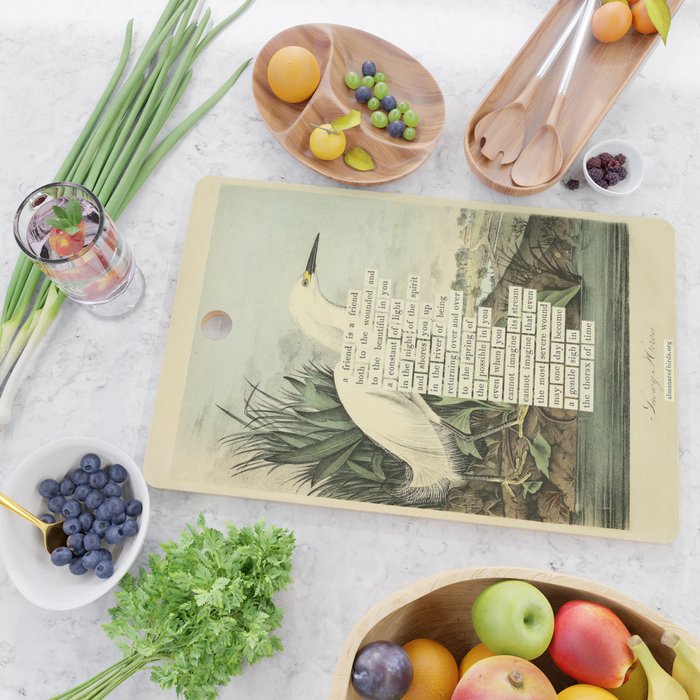 a friend is a friend
both to the wounded and
to the beautiful in you
a constant of light
in the night of the spirit
and shores you up
in the river of being
returning over and over
to the spring of
the possible in you
even when you
cannot imagine its stream
cannot imagine that even
the most severe wound
may one day become
a gentle sigh in
the thorax of time
Snowy Heron
almanacofbirds.org